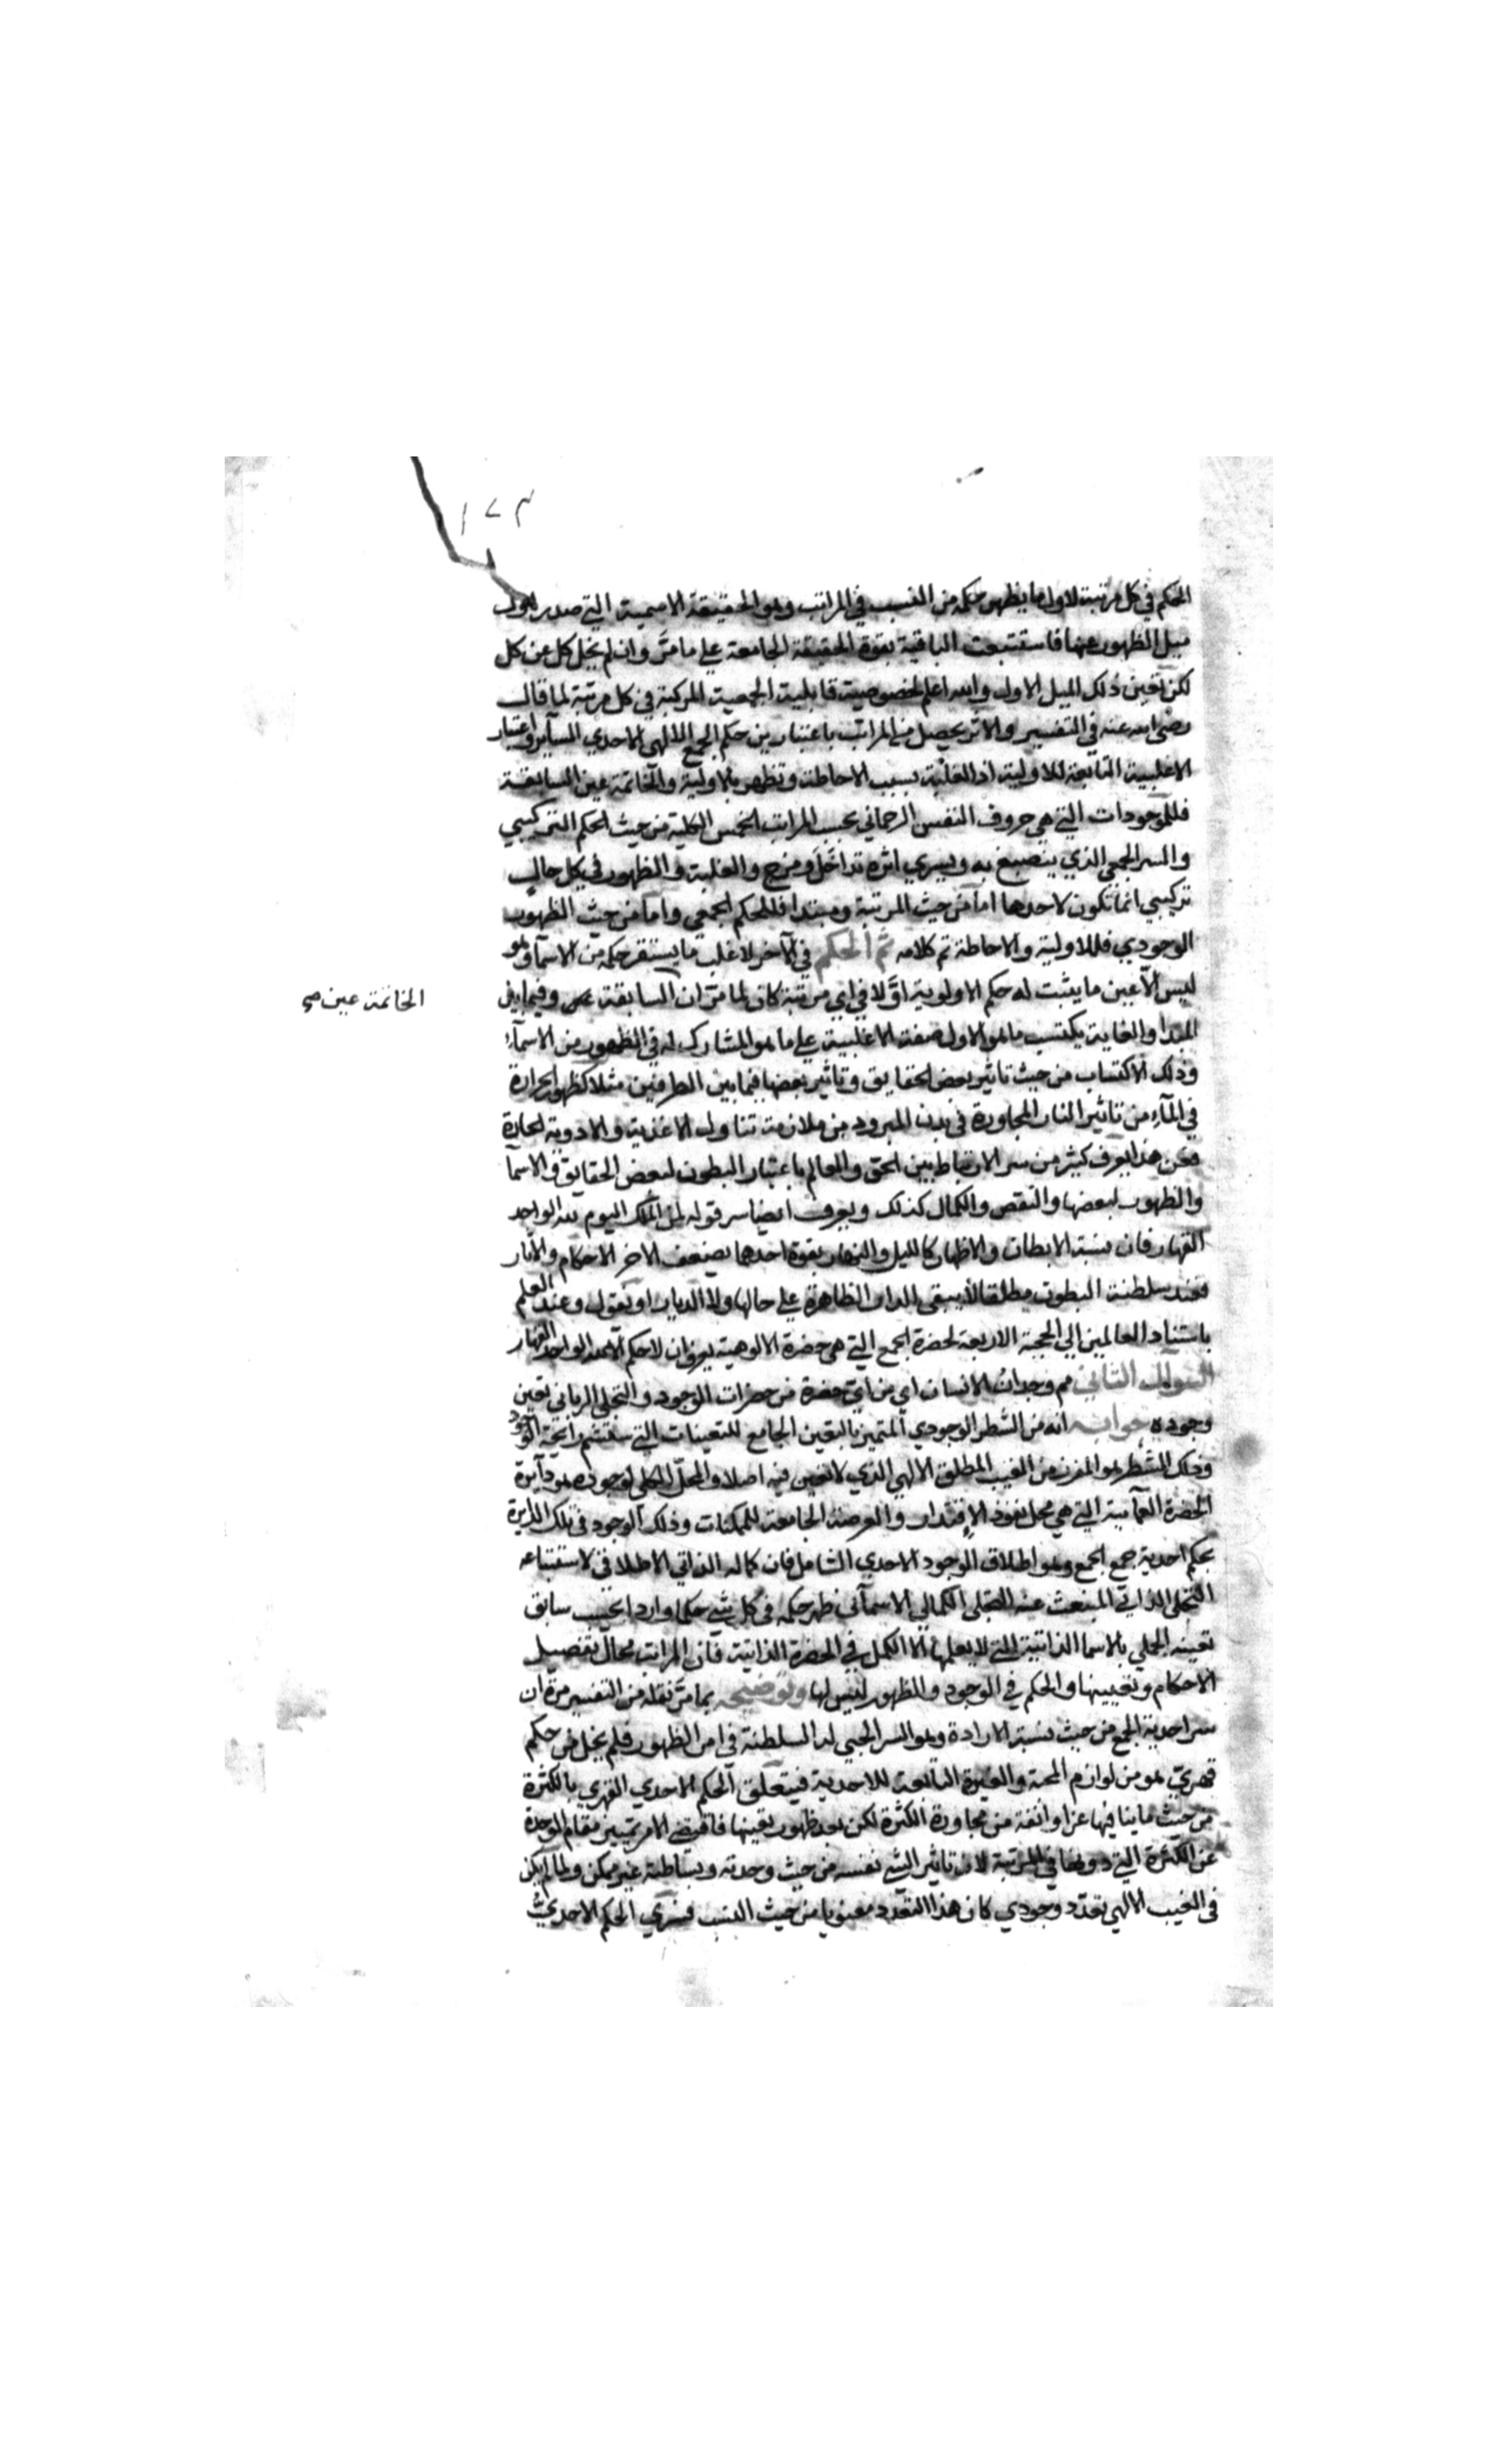 ١٧٣
الحكم في كل مرتبة لاول ما يظهر حكمه من النسب في المراتب وهو الحقيقة الاسمية التي صدر
ميل الظهور عنها فاستتبعت الباقية بقوة الحقيقة الجامعة على ما مرّ وان لم يخل كل عن كل
لكن تعين ذلك الميل الاول والله اعلم لخصوصية قابلية الجمعية المركبة في كل مرتبة لما قال
رضى الله عنه في التفسير والاثر يحصل من المراتب باعتبارين حكم الجمع الالهي الاحدي الساير واعتبار
الاغلبية التابعة للاولية اذ الغلبة بسبب الاحاطة وتظهر بالاولية والخاتمة عين السابقة
فللموجودات التي هي حروف النفس الرحماني بحسب المراتب الخمس الكلية من حيث الحكم التركيبي
والسر الجمعي الذي ينصبغ به ويسري اثره تداخل ومزج والغلبة والظهور في كل حال
تركيبي انما تكون لاحدها اما من حيث المرتبة ومبتدا فللحكم الجمعي واما من حيث الظهور
الوجودي فللاولية والاحاطة تم كلامه ثم الحكم في الآخر لاغلب ما يستقر حكمه من الاسماء وهو
ليس الّا عين ما يثبت له حكم الاولوية اوّلا في اي مرتبة كان لما مرّ ان السابقة وفيما بين
الخاتمة عين صح
المبدا والغاية يكتسب ما هو الاول صفة الاغلبية على ما هو المشارك له في الظهور من الاسماء
وذلك الاكتساب من حيث تاثير بعض الحقايق وتاثير بعضها فيما بين الطرفين مثلا كظهور الحرارة
في الماء من تاثير النار المجاورة في بدن المبرود من ملازمة تناول الاغذية والادوية الحارة
فمن هذا يعرف كثير من سر الارتباط بين الحق والعالم باعتبار البطون لبعض الحقايق والاسما
والظهور لبعضها والنقص والكمال كذلك ويعرف ايضا سر قوله لمن الملك اليوم لله الواحد
القهار فان نسبة الابطان والاظهار كالليل والنهار بقوة احدهما يضعف الاخر الاحكام والاثار
فعند سلطنة البطون مطلقا لا يبقى الدار الظاهرة على حالها ولا الديار او نقول وعند العلم
باستناد العالمين الى الحجة الاربعة لحضرة الجمع التي هي حضرة الالوهية يعرف ان لا حكم الا لله الواحد القهار
السوال الثاني مم وجدان الانسان اي من اي حضرة من حضرات الوجود والتجلي الرباني تعين
وجوده جوابه انه من الشطر الوجودي المتميز بالتعين الجامع للتعينات التي ستشم رائحة الوجود
وذلك الشطر هو المفرز من الغيب المطلق الالهي الذي لا تعين فيه اصلا والمحل الكلي لوجوده هو دائرة
الحضرة العمائية التي هي محل نفوذ الاقتدار والعرصة الجامعة للممكنات وذلك الوجود في تلك الدايرة
بحكم احدية جمع الجمع وهو اطلاق الوجود الاحدي الشامل فان كماله الذاتي الاطلاقي لاستتباعه
التجلي الذاتي المنبعث عنه التجلي الكمالي الاسمائي ظهر حكمه في كل شي حكما واردا بحسب سابق
تعينه الجملي بالاسما الذاتية التي لا يعلمها الا الكمل في الحضرة الذاتية فان المراتب محال تفصيل
الاحكام وتعيينها والحكم في الوجود والظهور ليس لها وتوضيحه بما مرّ نقله من التفسير مرة ان
سر احدية الجمع من حيث نسبة الارادة وهو السر الحبي له السلطنة في امر الظهور فلم يخل من حكم
قهري هو من لوازم المحبة والغيرة التابعة للاحدية فيتعلق الحكم الاحدي القهري بالكثرة
من حيث ما ينافيها عزا وانفة من مجاورة الكثرة لكن بعد ظهور تعينها فاقتضى الامر تمييز مقام الوحدة
عن الكثرة التي دونها في المرتبة لان تاثير الشي نفسه من حيث وحدته وبساطته غير ممكن ولما لم يكن
في الغيب الالهي تعدّد وجودي كان هذا التعدد معنويا من حيث النسب فسرى الحكم الاحدي